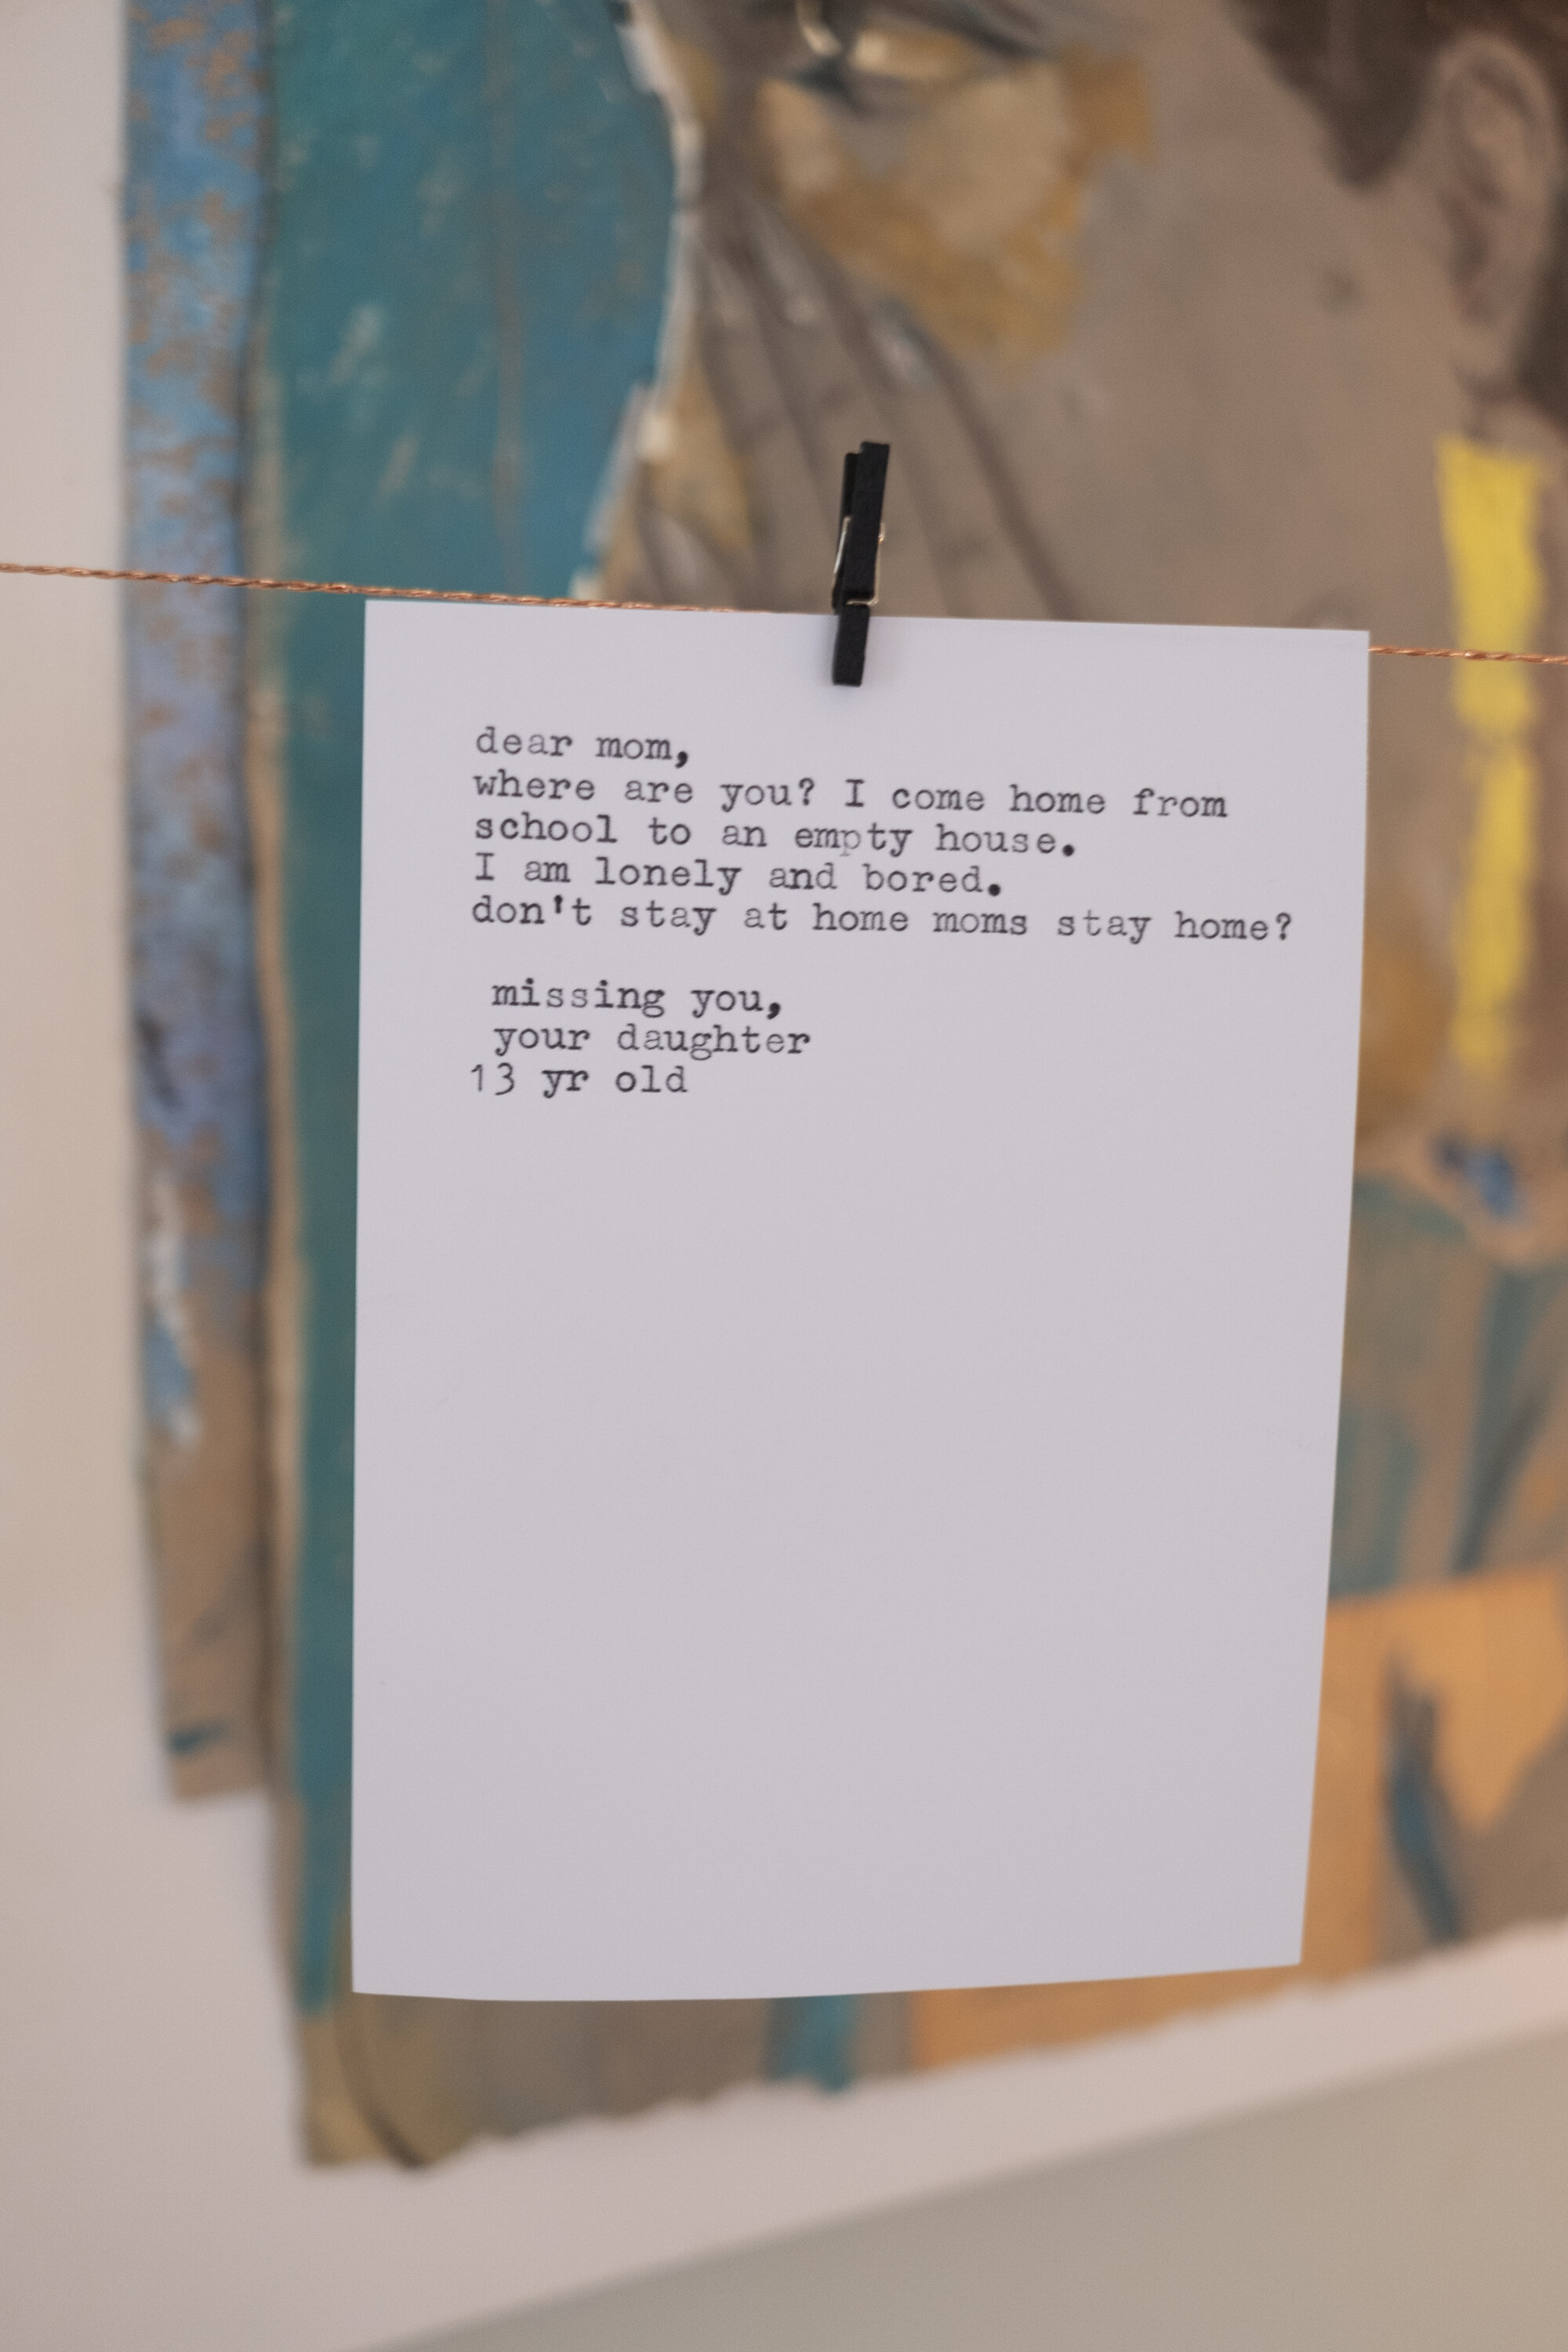 dear mom,
where are you? I come home from
school to an empty house.
I am lonely and bored.
don't stay at home moms stay home?
missing you,
your daughter
13 yr old